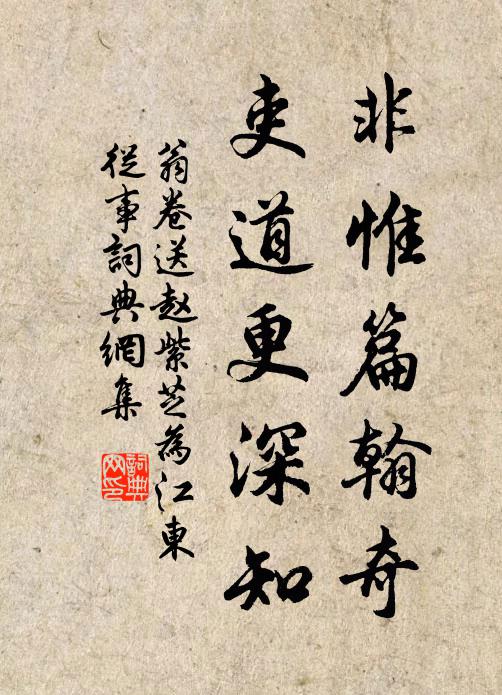 非惟篇翰奇
吏道更深知
翁卷送赵紫芝為江東
從事詞典網集
詞典網印